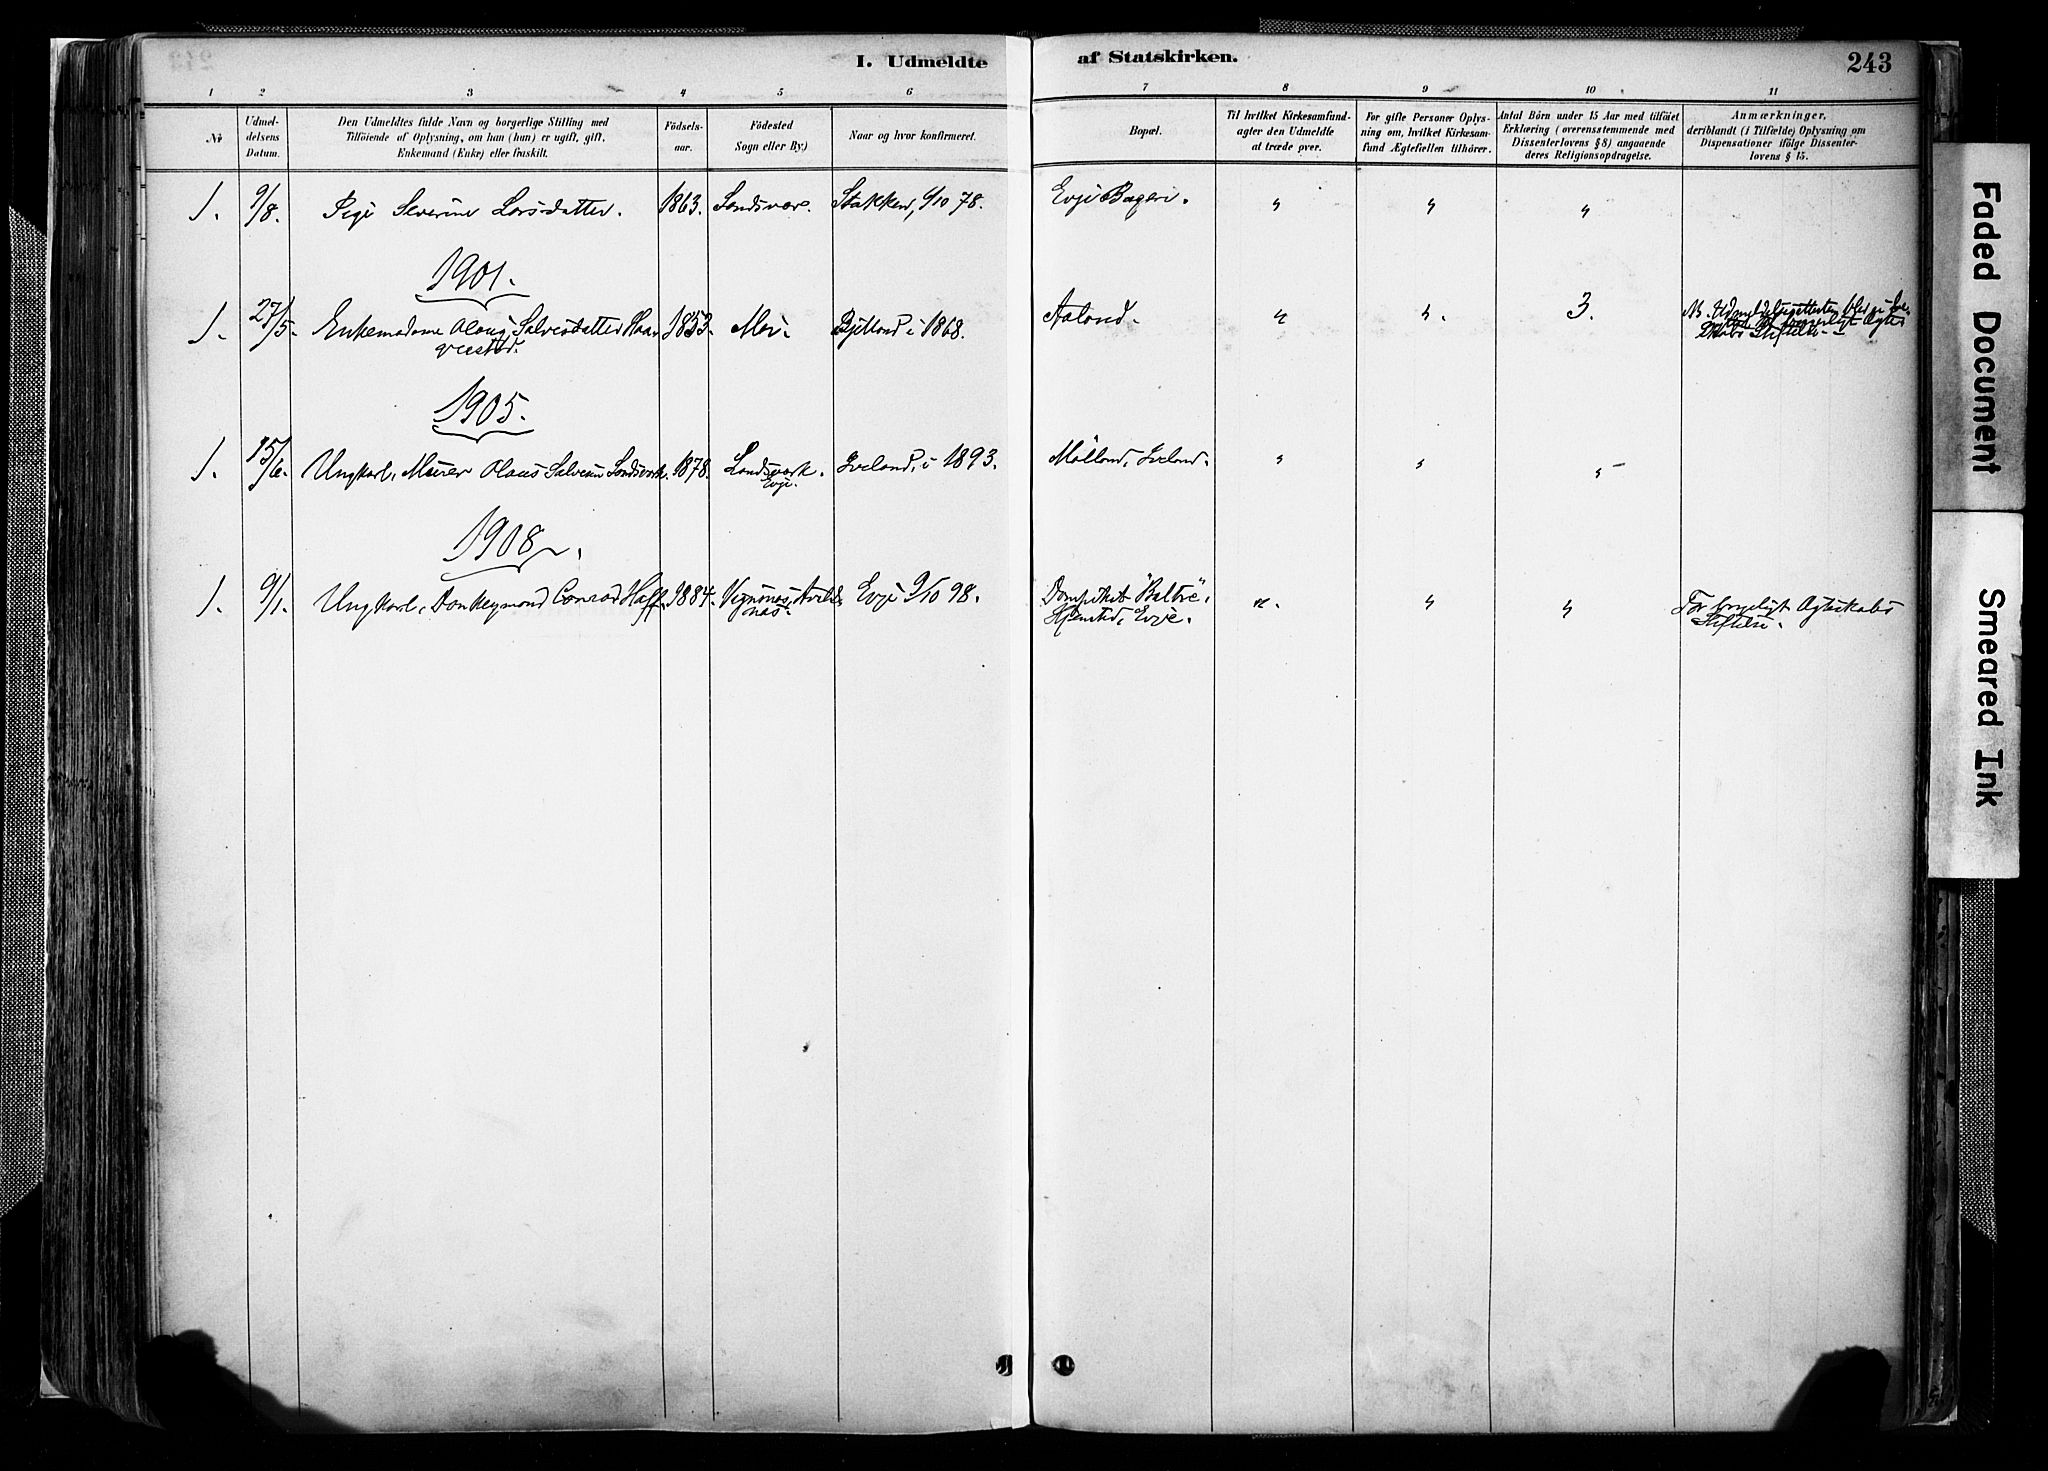 I. Udmeldte af Statskirken.
243
1 2 3 4 5 6 7 8 9 10 11
Nr
Udmeldelsens Datum.
Den Udmeldtes fulde Navn og borgerlige Stilling med
Tilföiende af Oplysning, om han (hun) er ugift, gift,
Enkemand (Enke) eller fraskilt.
Födselsaar.
Födested
Sogn eller By.)
Naar og hvor konfirmeret.
Bopæl.
Til hvilket Kirkesamfund-
agter den Udmeldte
at træde over.
For gifte Personer Oplys-
ning om, hvilket Kirkesam-
fund Ægtefællen tilhörer.
Antal Börn under 15 Aar med tilföiet
Erklæring (overensstemmende med
Dissenterlovens § 8) angaaende
deres Religionsopdragelse.
Anmærkninger,
deriblandt (i Tilfælde) Oplysning om
Dispensationer ifölge Dissenter-
lovens § 15.
1. 9/8. Pige Severine Larsdatter. 1863. Sandsvær. 78. Evje Bageri. " " "
1901.
1. 27/5. Enkemadame Salvesdatter 1853. Bjelland i 1868. Aaland. " " 3.
1905.
1. 15/6. Ungkarl, Murer Olaus Salvesen Landsverk. 1878. Landsverk. Evje. Iveland, i 1893. Mölland, Iveland. " " "
1908.
1. 9/1. Ungkarl, Conrad Haff. 1884. Evje 9/10 98. "Baltic", Evje. " " " For borgerligt Ægteskabs
Stiftelse.
Faded Document
Smeared Ink